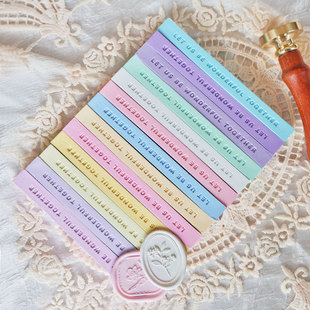 LET US BE WONDERFUL TOGETHER
LET US BE WONDERFUL TOGETHER
LET US BE WONDERFUL TOGETHER
LET US BE WONDERFUL TOGETHER
LET US BE WONDERFUL TOGETHER
LET US BE WONDERFUL TOGETHER
LET US BE WONDERFUL TOGETHER
LET US BE WONDERFUL TOGETHER
LET US BE WONDERFUL TOGETHER
BE WONDERFUL TOGETHER
BE WONDERFUL TOGETHER
BE WONDERFUL TOGETHER